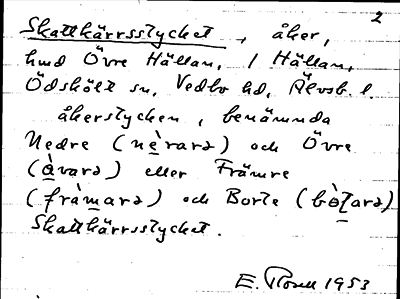 2
Skattkärrsstycket, åker,
hmd Övre Hällan, / Hällan,
Ödskölt sn, Vedbo hd, Älvsb. l.
åkerstycken, benämnda
Nedre (nè̱rara) och Övre
(à̱vara) eller Främre
(fràm̱ara) och Borte (bòṯara)
Skattkärrsstycket.
E. Rosell 1953